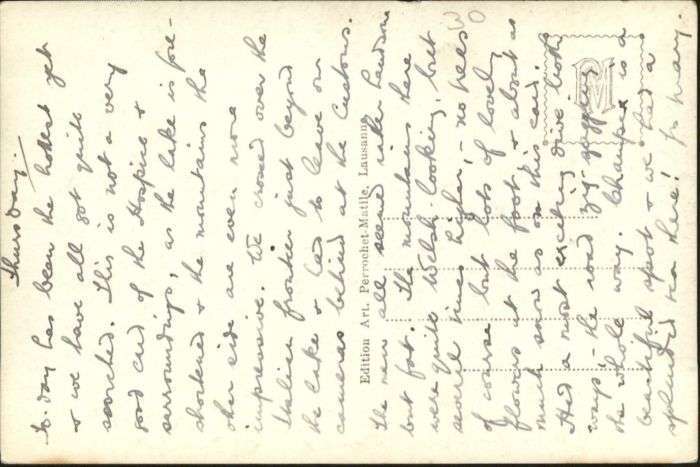 Thursday.
To-day has been the hottest yet
& we have all got quite
scorched. This is not a very
good card of the Hospice &
surroundings, as the lake is fore-
shortened & the mountains the
other side are even more
impressive. We crossed over the
Italian frontier just beyond
the lake & had to leave our
cameras behind at the Customs.
Edition Art. Perrochet-Matile, Lausanne
The men all seemed rather handsome
but fat. The mountains here
were quite Welsh-looking, but
several times higher, - no trees
of course but lots of lovely
flowers at the foot, & about as
much snow as on this card.
Had a most exciting drive both
ways - the road zig-zagging
the whole way. Champex is a
beautiful spot & we had a
splendid tea there!